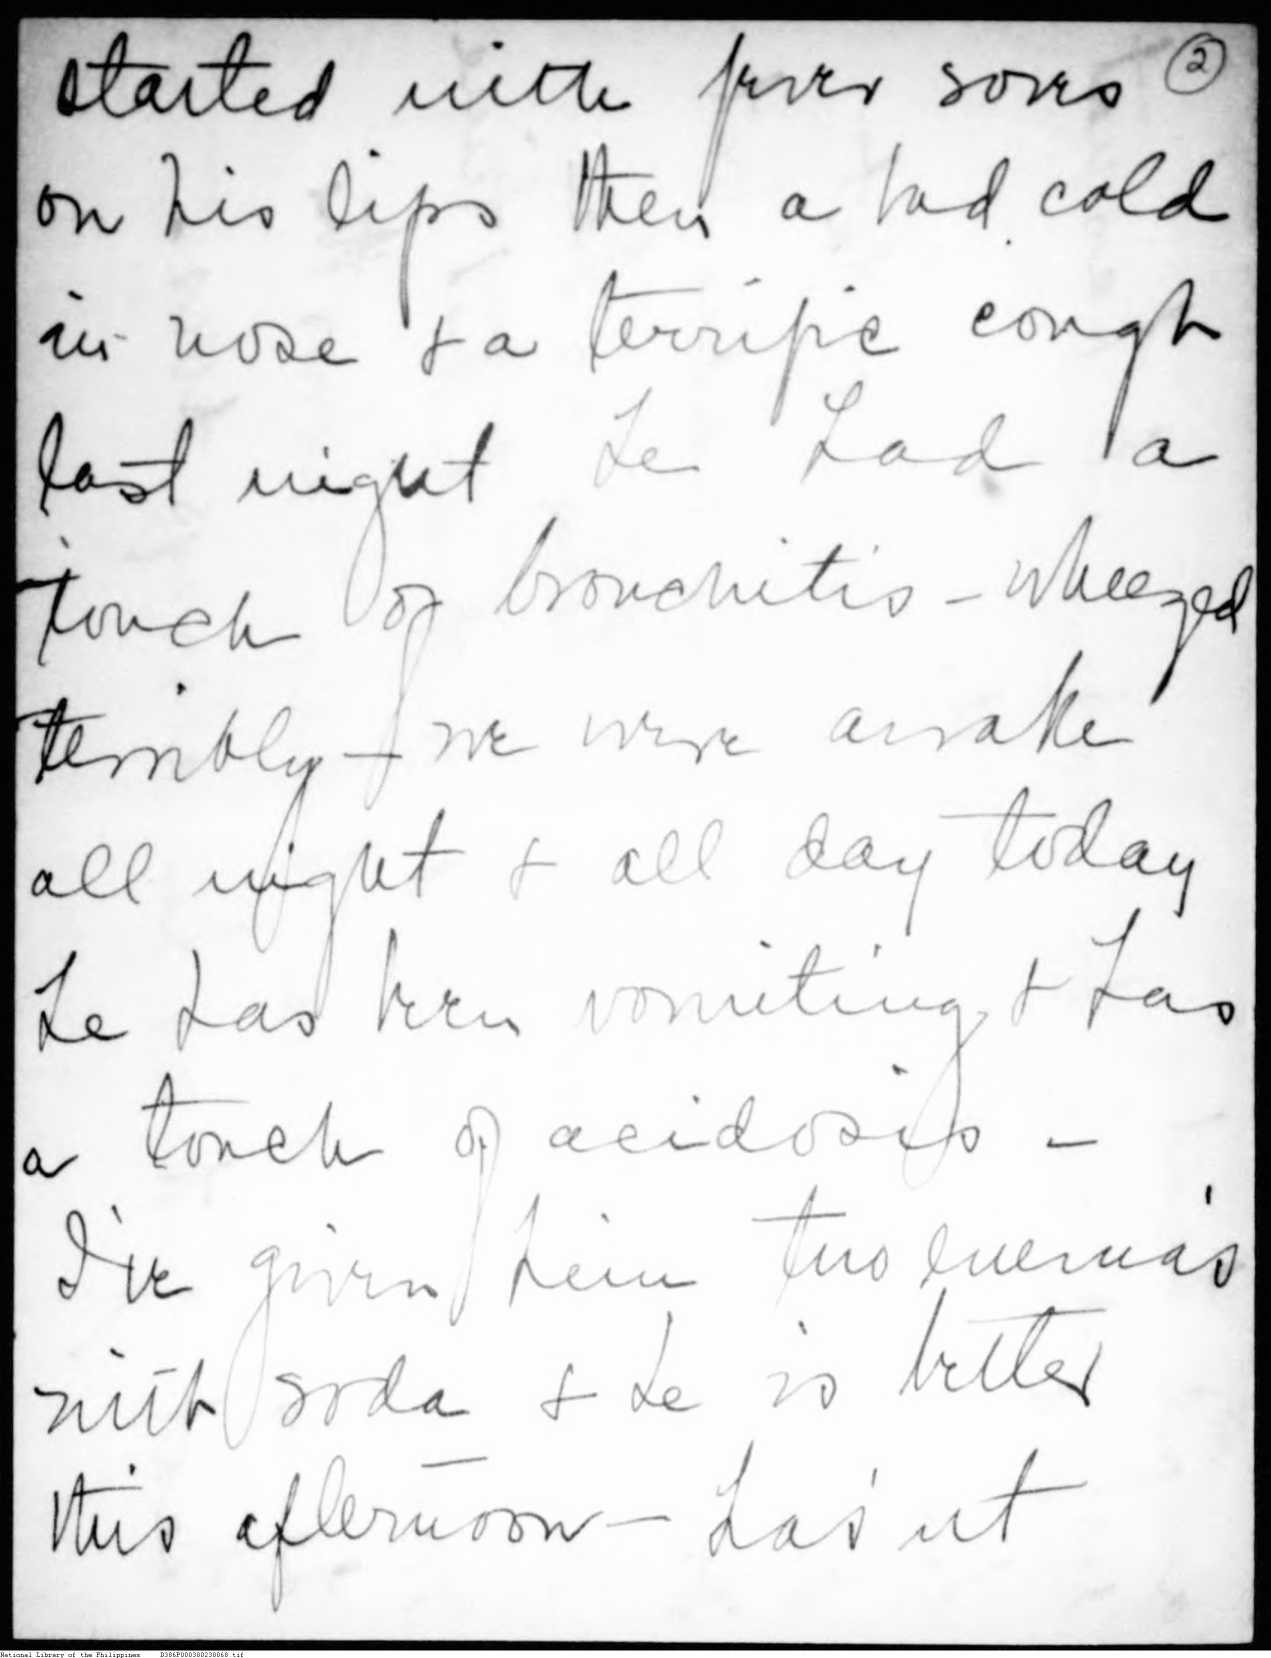 ②
started with fever sores
on his lips then a bad cold
in nose & a terrific cough
last night he had a
touch of bronchitis - wheezed
terribly - we were awake
all night & all day today
he has been vomiting & has
a touch of acidosis -
I've given him two enema's
with soda & he is better
this afternoon - has'nt
National Library of the Philippines D386P000300230068.tif